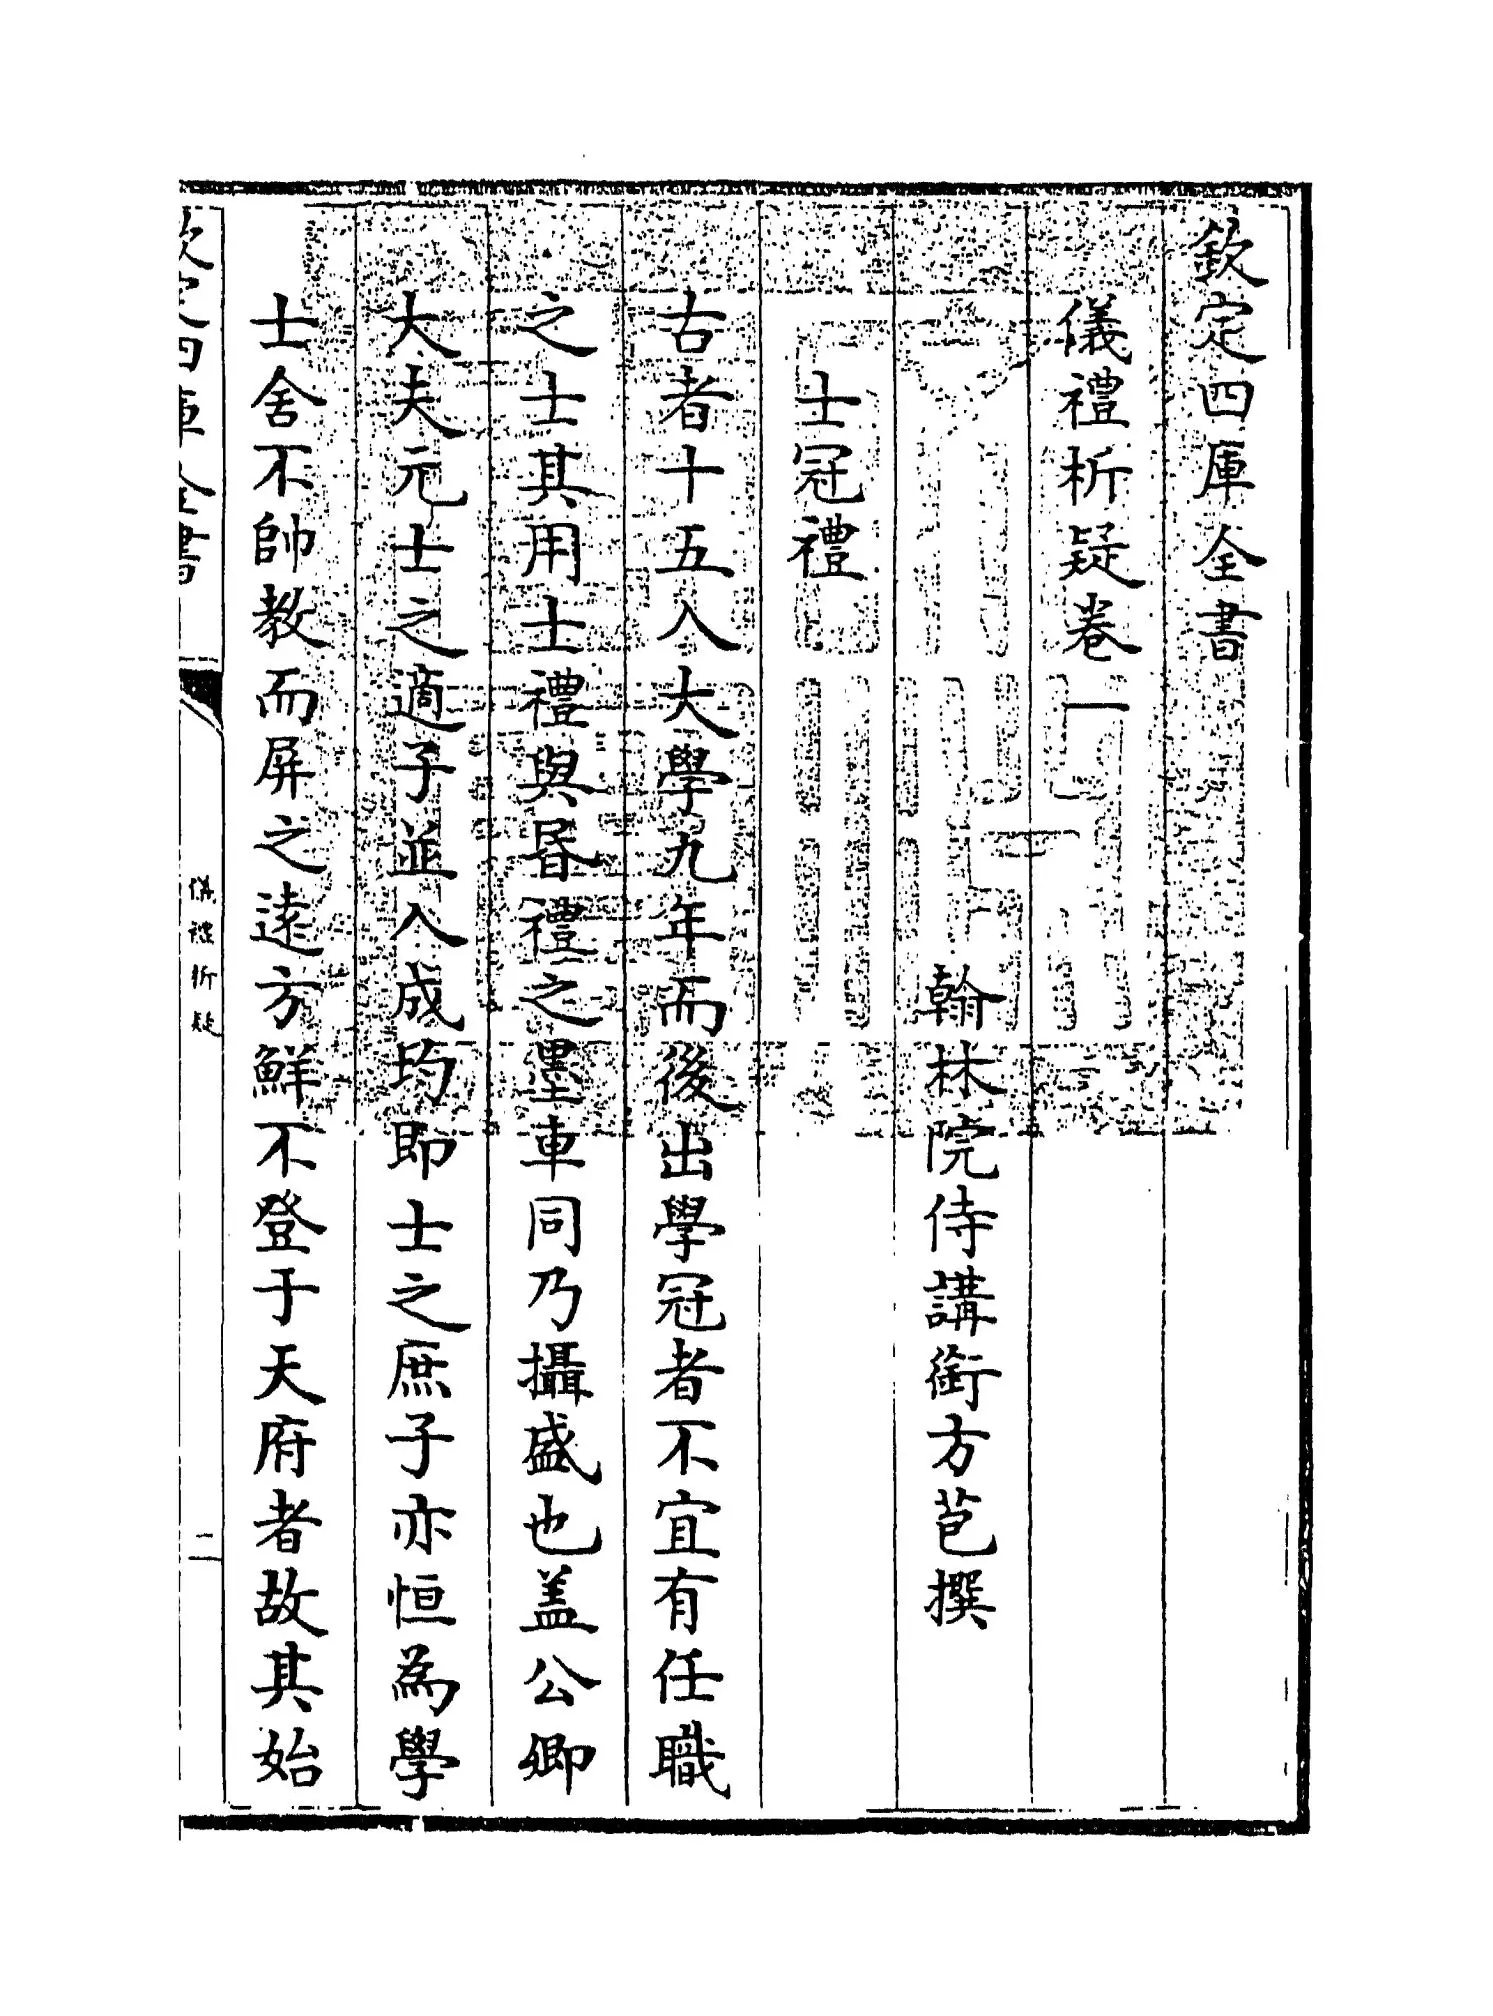 欽定四庫全書
儀禮析疑卷一
翰林院侍講銜方苞撰
士冠禮
古者十五入大學九年而後出學冠者不宜有任職
之士其用士禮與昏禮之墨車同乃攝盛也盖公卿
大夫元士之適子並入成均即士之庶子亦恒為學
士舍不帥教而屏之逺方鮮不登于天府者故其始
欽定四庫全書
儀禮析疑
二